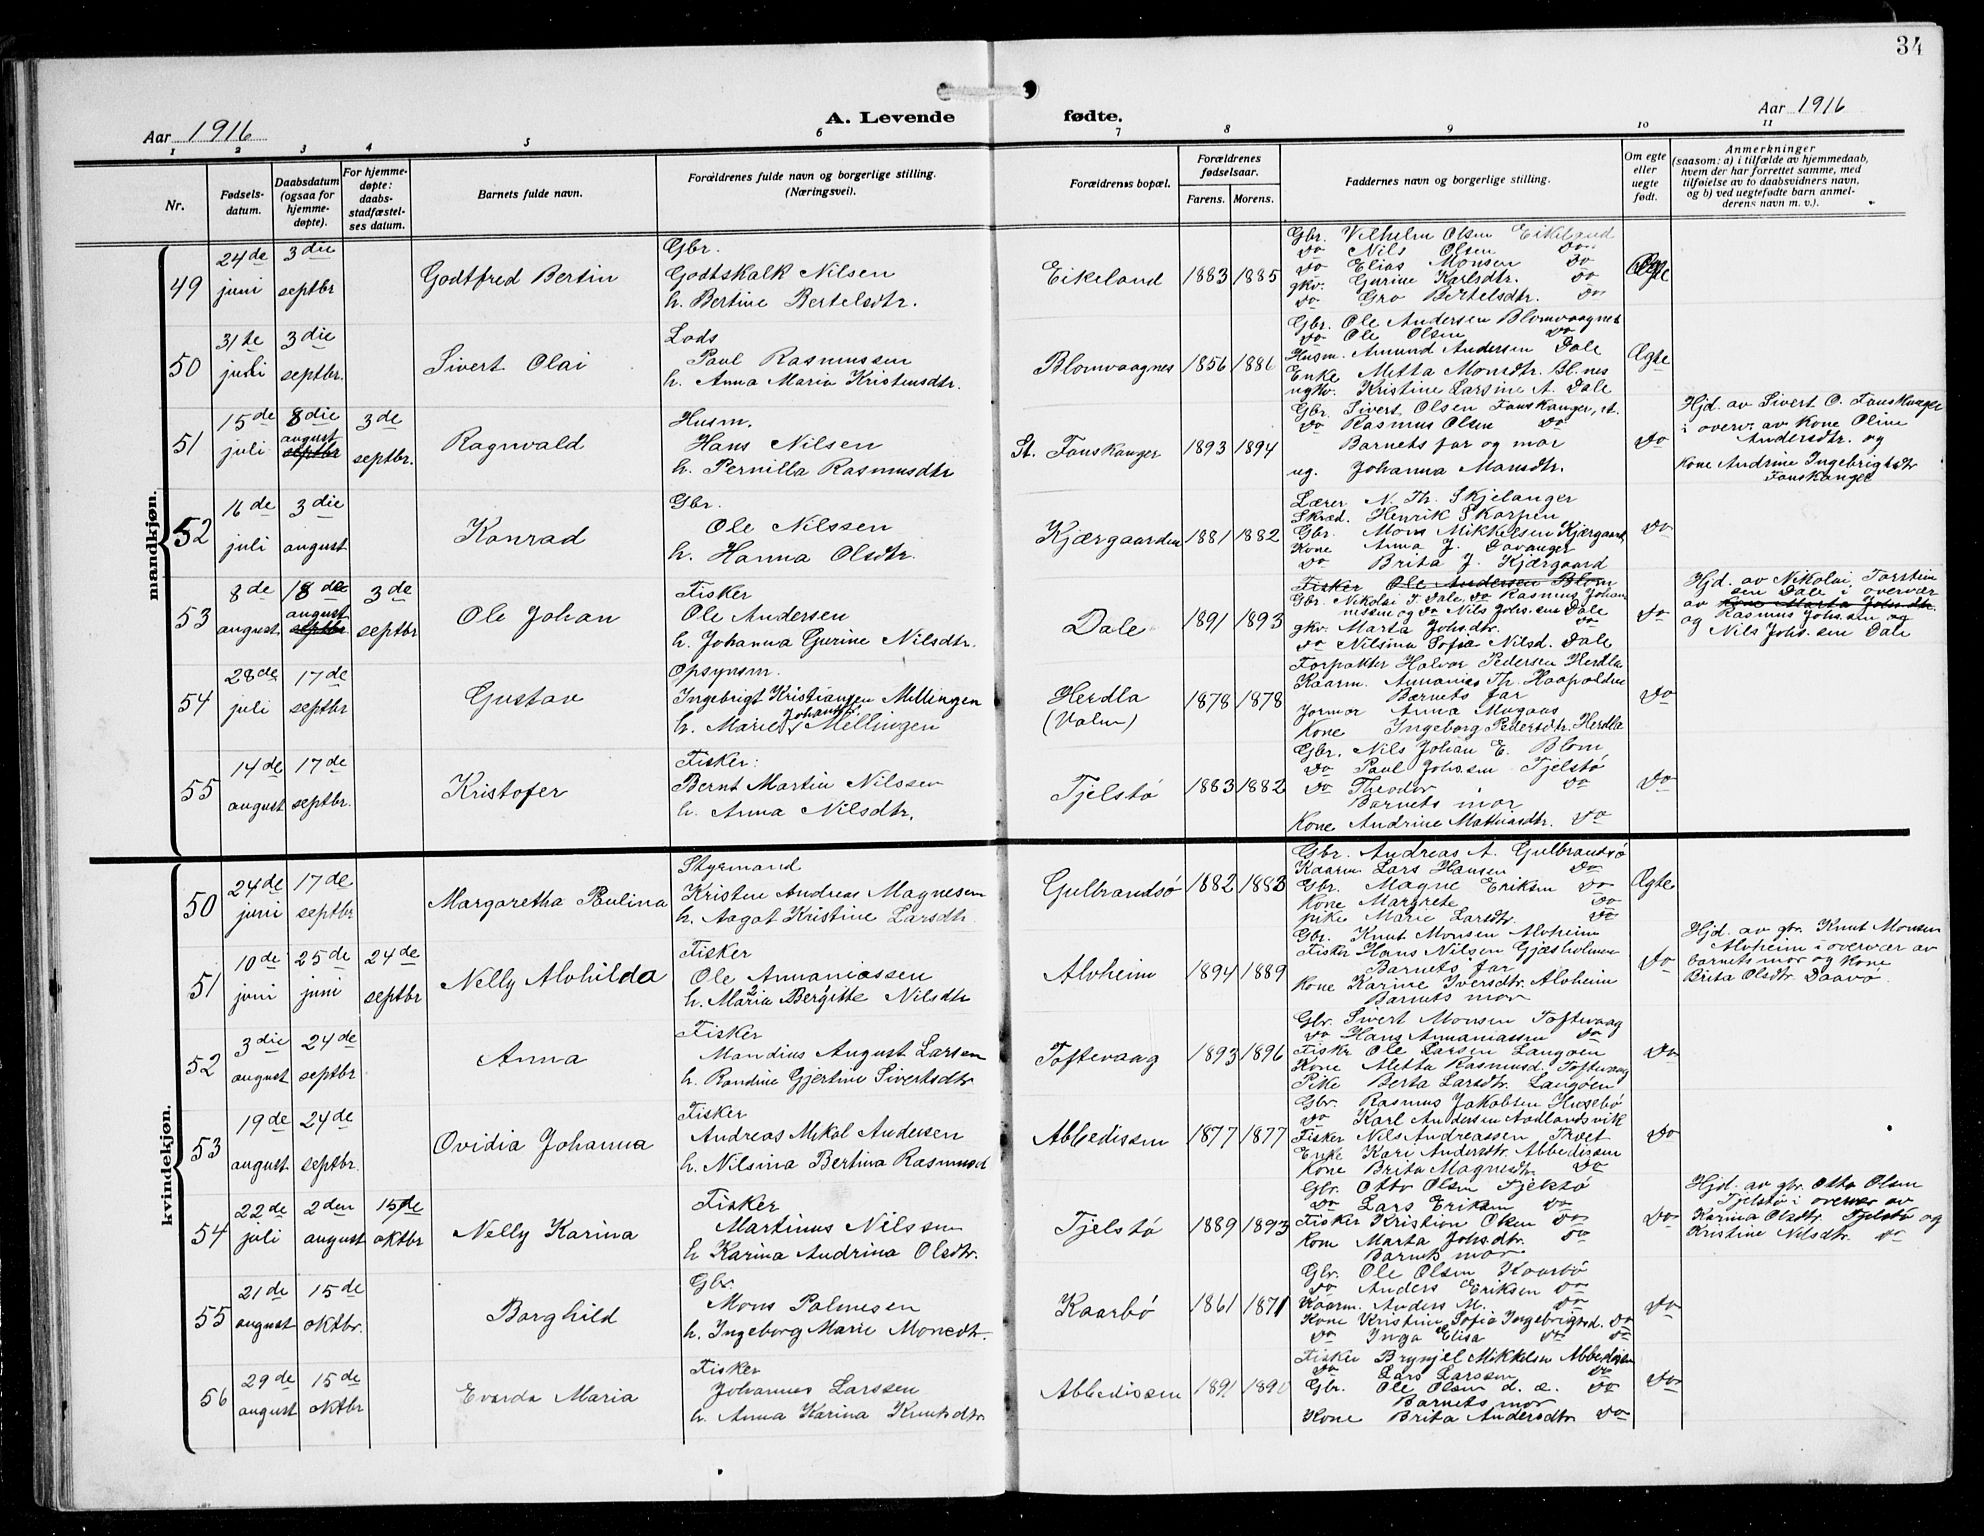 34
Aar 1916
A. Levende fødte.
Aar 1916
1 2 3 4 5 6 7 8 9 10 11
Nr.
Fødsels-
datum.
Daabsdatum
(ogsaa for
hjemme-
døpte).
For hjemme-
døpte:
daabs-
stadfæstel-
ses datum.
Barnets fulde navn.
Forældrenes fulde navn og borgerlige stilling.
(Næringsvei).
Forældrenes bopæl.
Forældrenes
fødselsaar.
Farens. Morens.
Faddernes navn og borgerlige stilling.
Om egte
eller
uegte
født.
Anmerkninger
(saasom: a) i tilfælde av hjemmedaab,
hvem der har forrettet samme, med
tilføielse av to daabsvidners navn,
og b) ved uegtefødte barn anmel-
derens navn m. v.).
mandkjøn.
49
24de
juni
3die
septbr
Godtfred Bertin
Gbr.
Godtskalk Nilsen
h. Bertine Bertelsdtr.
Eikeland
1883 1885
Gbr. Vilhelm Olsen Eikeland
do Nils Olsen do
do Elias Monsen do
gkv. Gurine Karlsdtr. do
do Gro Bertelsdtr. do
Ægte
50
31te
juli
3die
septbr.
Sivert Olai
Lods
Paul Rasmussen
h. Anna Maria Kristensdtr.
Blomvaagnes
1856 1886
Gbr. Ole Andersen Blomvaagnes
do Ole Olsen do
Husm. Amund Andersen Dale
Enke Metta Monsdtr. Bl.nes
ugkv. Kristine Larsine A. Dale
Ægte
51
15de
juli
8die
august
septbr
3de
septbr.
Ragnvald
Husm.
Hans Nilsen
h. Pernilla Rasmusdtr
St. Fauskanger
1893 1894
Gbr. Sivert Olsen Fauskanger, st.
do Rasmus Olsen do
Barnets far og mor
ug. Johanna Mansdtr.
do
Hjd. av Sivert O. Fauskanger
i overv. av Kone Oline
Andersdtr. og
Kone Andrine Ingebrigtsdtr
Fauskanger
52
16de
juli
3die
august
Konrad
Gbr.
Ole Nilssen
h. Hanna Olsdtr.
Kjærgaarden
1881 1882
Lærer N. Th. Skjelanger
Skræd. Henrik Skarpen
Gbr. Mons Mikkelsen Kjærgaard
Kone Anna J. Davanger
do Brita J. Kjærgaard
do
53
8de
august
18de
august
septbr
3de
septbr
Ole Johan
Fisker
Ole Andersen
h. Johanna Gurine Nilsdtr.
Dale
1891 1893
Fisker Ole Andersen Blom
Gbr. Nikolai T. Dale, do Rasmus Johan
nissen og do Nils Johs.sen Dale
gkv. Marta Johsdtr. do
do Nilsina Sofia Nilsd. Dale
do
Hjd. av Nikolai Torstein
sen Dale i overvær
av Kone Marta Johsdtr.
Rasmus Johs.sen og
og Nils Johs.sen Dale
54
28de
juli
17de
septbr
Gustav
Opsynsm.
Ingebrigt Kristiansen Mellingen
h. Marie Johansd. Mellingen
Herdla
(Valen)
1878 1878
Forpakter Halvor Pedersen Herdla
Kaarm. Annanias Th. Haapoldnes
Barnets far
Jormor Anna Mugaas
Kone Ingeborg Pedersdtr. Herdla
do
55
14de
august
17de
septbr.
Kristofer
Fisker.
Bernt Martin Nilssen
h. Anna Nilsdtr.
Tjelstø
1883 1882
Gbr. Nils Johan E. Blom
do Paul Johs.sen Tjelstø
do Theodor do
Barnets mor
Kone Andrine Mathiasdtr. do
do
kvindekjøn.
50
24de
juni
17de
septbr
Margaretha Paulina
Styrmand
Kristen Andreas Magnesen
h. Aagot Kristine Larsdtr.
Gulbrandsø
1882 1883
Gbr. Andreas A. Gulbrandsø
Kaarm Lars Hansen do
Gbr. Magne Eriksen do
Kone Margrete do
pike Marie Larsdtr. do
Ægte
51
10de
juni
25de
juni
24de
septbr
Nelly Alvhilda
Fisker
Ole Annaniassen
h. Maria Bergitte Nilsdtr
Alvheim
1894 1889
Gbr. Knut Monsen Alvheim
Fisker Hans Nilsen Gjæsholmen
Barnets far
Kone Karine Iversdtr. Alvheim
Barnets mor
do
Hjd. av gbr. Knut Monsen
Alvheim i overvær av
barnets mor og Kone
Brita Olsdtr. Daavø
52
3die
august
24de
septbr
Anna
Fisker
Mandius August Larsen
h. Randine Gjertine Sivertsdtr
Toftevaag
1893 1896
Gbr. Sivert Monsen Toftevaag
do Hans Annaniassen do
Fiskr Ole Larsen Langøen
Kone Aletta Rasmusd. Toftevaag
Pike Berta Larsdtr. Langøen
do
53
19de
august
24de
septbr.
Ovidia Johanna
Fisker
Andreas Mikal Andersen
h. Nilsina Bertina Rasmusd
Abbedissen
1877 1877
Gbr. Rasmus Jakobsen Husebø
do Karl Andersen Aadlandsvik
Fisker Nils Andreassen Træet
Enke Kari Andersdtr. Abbedissen
Kone Brita Magnesdtr. do
do
54
22de
juli
2den
august
15de
oktbr
Nelly Karina
Fisker
Martinus Nilssen
h Karina Andrina Olsdtr.
Tjelstø
1889 1893
Gbr. Otto Olsen Tjelstø
do Lars Eriksen do
Fisker Kristian Olsen do
Kone Marta Johsdtr. do
Barnets mor
do
Hjd. av gbr. Otto Olsen
Tjelstø i overvær av
Karina Olsdtr. Tjelstø og
Kristine Nilsdtr. do
55
21de
august
15de
oktbr.
Borghild
Gbr.
Mons Palmesen
h. Ingeborg Marie Monsdtr.
Kaarbø
1861 1871
Gbr. Ole Olsen Kaarbø
do Anders Eriksen do
Kaarm. Anders M. do
Kone Kristine Sofia Ingebrigtsd. do
do Inga Elisa do do
do
56
29de
august
15de
oktbr
Evarda Maria
Fisker
Johannes Larssen
h. Anna Karina Knutsdtr.
Abbedissen
1891 1890
Fisker Brynjel Mikkelsen Abbedissen
do Lars Larssen do
Gbr. Ole Olsen d. e. do
Barnets mor
Kone Brita Andersdtr do
do